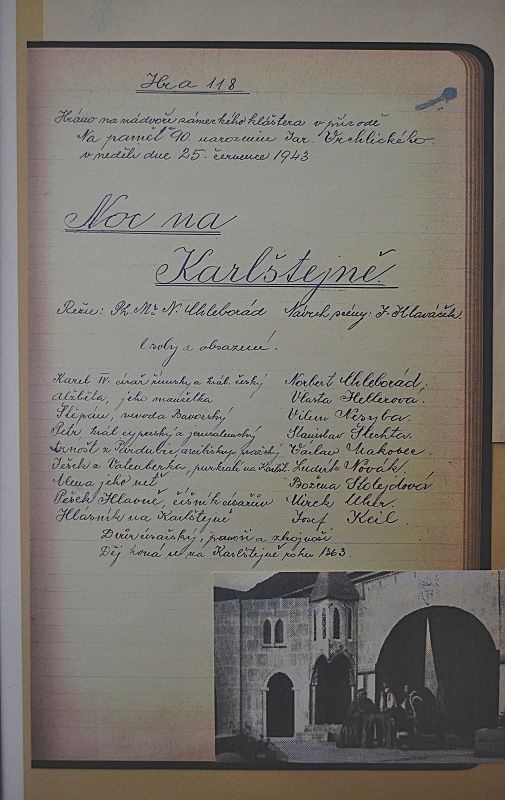 Hra 118
Hráno na nádvoří zámeckého kláštera v přírodě
Na paměť 90. narozenin Jar. Vrchlického.
v neděli dne 25. července 1943
Noc na
Karlštejně.
Režie: Ph. Mr. N. Uhleborád Návrh scény: J. Hlaváček.
Osoby a obsazení.
Karel IV. císař římský a král český Norbert Uhleborád.
Alžběta, jeho manželka Vlasta Hellerová.
Štěpán, vévoda Bavorský Vilém Nesyba.
Petr, král cyperský a jerusalemský Stanislav Šlechta.
Arnošt z Pardubic, arcibiskup pražský Václav Makovec.
Ješek z Vartenberka, purkrabí na Karlšt. Ludvík Novák.
Alena jeho neť Božena
Pešek Hlavně, číšník císařův Mirek Uher.
Hlásník na Karlštejně Josef Keil.
Dvůr císařský, panoši a zbrojnoši
Děj koná se na Karlštejně roku 1363.